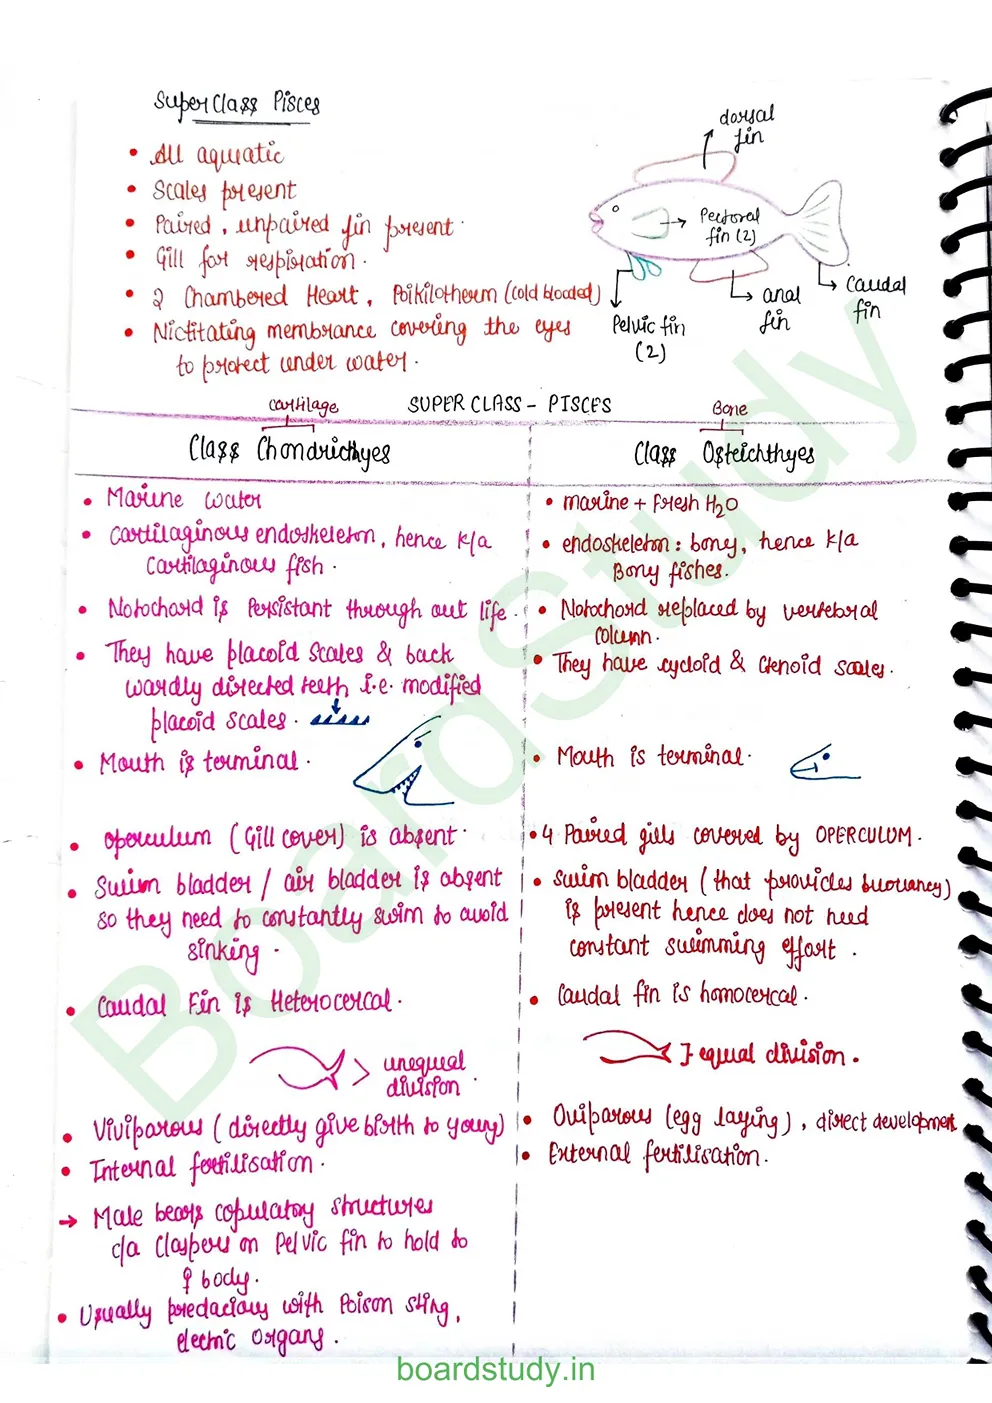 Super Class Pisces
• All aquatic
• Scales present
• Paired, unpaired fin present.
• Gill for respiration.
• 2 Chambered Heart, Poikilotherm (cold blooded)
• Nictitating membrance covering the eyes
to protect under water.
dorsal
fin
Pectoral
fin (2)
Pelvic fin
(2)
anal
fin
Caudal
fin
SUPER CLASS - PISCES
cartilage
Class Chondricthyes
• Marine water
• Cartilaginous endoskeleton, hence k/a
Cartilaginous fish.
• Notochord is Persistant through out life.
• They have placoid scales & back
wardly directed teeth i.e. modified
placoid scales.
• Mouth is terminal.
• operculum (Gill cover) is absent.
• Swim bladder / air bladder is absent
so they need to constantly swim to avoid
sinking.
• Caudal Fin is Heterocercal.
unequal
division.
• Viviparous (directly give birth to young)
• Internal fertilisation.
→ Male bears copulatory structures
c/a Claspers on Pelvic fin to hold to
♀ body.
• Usually predacious with Poison sting,
electric organs.
Bone
Class Osteichthyes
• marine + fresh H2O
• endoskeleton: bony, hence k/a
Bony fishes.
• Notochord replaced by vertebral
column.
• They have cycloid & ctenoid scales.
• Mouth is terminal.
• 4 Paired gills covered by OPERCULUM.
• Swim bladder (that provides buoyancy)
is present hence does not need
constant swimming effort.
• Caudal fin is homocercal.
} equal division.
• Oviparous (egg laying), direct development
• External fertilisation.
BoardStudy
boardstudy.in